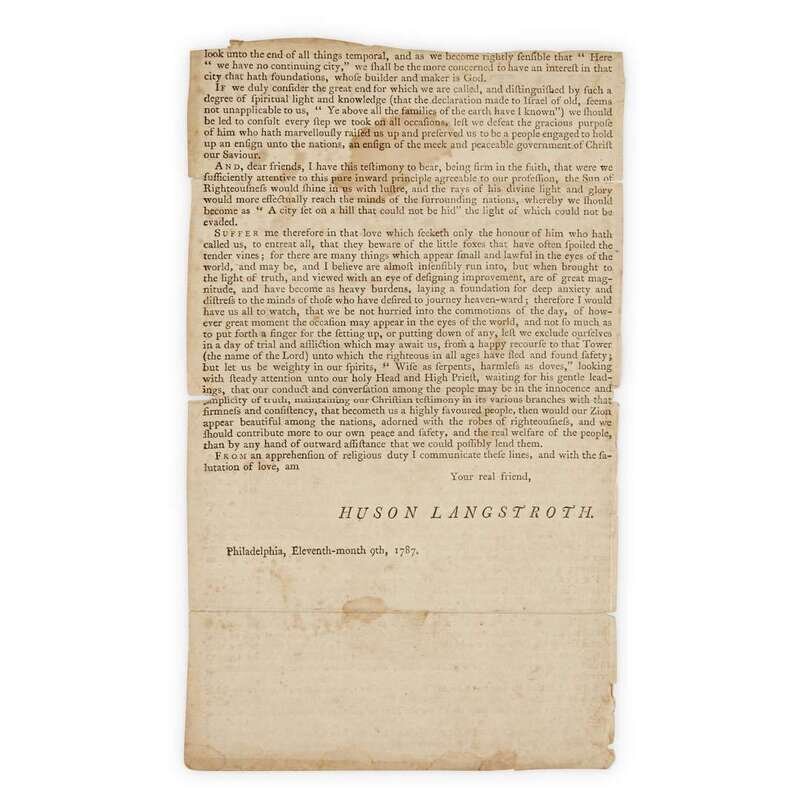 look unto the end of all things temporal, and as we become rightly ſenſible that “ Here
“ we have no continuing city,” we ſhall be the more concerned to have an intereſt in that
city that hath foundations, whoſe builder and maker is God.
IF we duly conſider the great end for which we are called, and diſtinguiſhed by ſuch a
degree of ſpiritual light and knowledge (that the declaration made to Iſrael of old, ſeems
not unapplicable to us, “ Ye above all the families of the earth have I known”) we ſhould
be led to conſult every ſtep we took on all occaſions, leſt we defeat the gracious purpoſe
of him who hath marvellouſly raiſed us up and preſerved us to be a people engaged to hold
up an enſign unto the nations, an enſign of the meek and peaceable government of Chriſt
our Saviour.
AND, dear friends, I have this teſtimony to bear, being firm in the faith, that were we
ſufficiently attentive to this pure inward principle agreeable to our profeſſion, the Sun of
Righteouſneſs would ſhine in us with luſtre, and the rays of his divine light and glory
would more effectually reach the minds of the ſurrounding nations, whereby we ſhould
become as “ A city ſet on a hill that could not be hid” the light of which could not be
evaded.
SUFFER me therefore in that love which ſeeketh only the honour of him who hath
called us, to entreat all, that they beware of the little foxes that have often ſpoiled the
tender vines; for there are many things which appear ſmall and lawful in the eyes of the
world, and may be, and I believe are almoſt inſenſibly run into, but when brought to
the light of truth, and viewed with an eye of deſigning improvement, are of great mag-
nitude, and have become as heavy burdens, laying a foundation for deep anxiety and
diſtreſs to the minds of thoſe who have deſired to journey heaven-ward; therefore I would
have us all to watch, that we be not hurried into the commotions of the day, of how-
ever great moment the occaſion may appear in the eyes of the world, and not ſo much as
to put forth a finger for the ſetting up, or putting down of any, left we exclude ourſelves
in a day of trial and affliction which may await us, from a happy recourſe to that Tower
(the name of the Lord) unto which the righteous in all ages have fled and found ſafety;
but let us be weighty in our ſpirits, “ Wiſe as ſerpents, harmleſs as doves,” looking
with ſteady attention unto our holy Head and High Prieſt, waiting for his gentle lead-
ings, that our conduct and converſation among the people may be in the innocence and
ſimplicity of truth, maintaining our Chriſtian teſtimony in its various branches with that
firmneſs and conſiſtency, that becometh us a highly favoured people, then would our Zion
appear beautiful among the nations, adorned with the robes of righteouſneſs, and we
ſhould contribute more to our own peace and ſafety, and the real welfare of the people,
than by any hand of outward aſſiſtance that we could poſſibly lend them.
FROM an apprehenſion of religious duty I communicate theſe lines, and with the ſa-
lutation of love, am
Your real friend,
HUSON LANGSTROTH.
Philadelphia, Eleventh-month 9th, 1787.